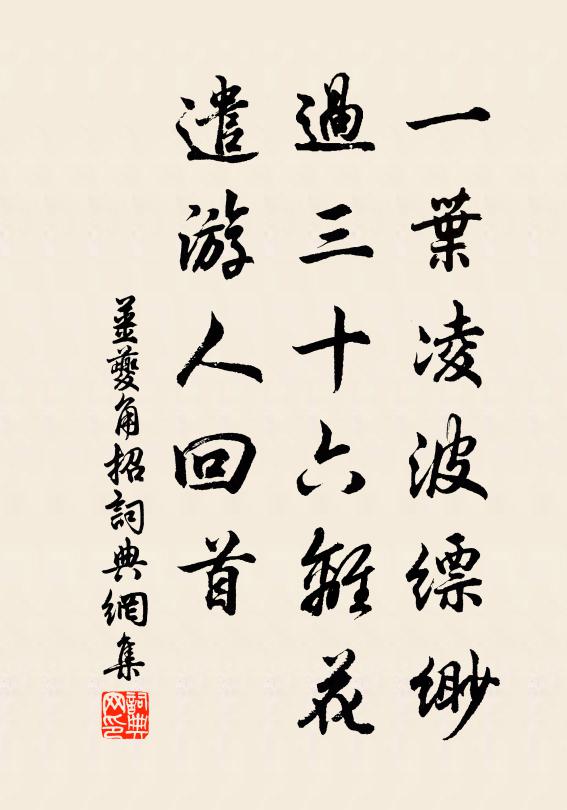 一葉凌波縹緲
過三十六離花
遣游人回首
姜夔角招詞典網集
詞典网印